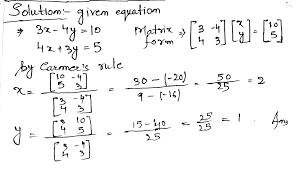 Solution:- given equation
⇒ 3x - 4y = 10
4x + 3y = 5
Matrix form ⇒ [3 -4; 4 3] [x; y] = [10; 5]
by Carmer's rule
x = [10 -4; 5 3] / [3 -4; 4 3] = 30 - (-20) / 9 - (-16) = 50/25 = 2
y = [3 10; 4 5] / [3 -4; 4 3] = 15 - 40 / 25 = 25/25 = 1 . Ans